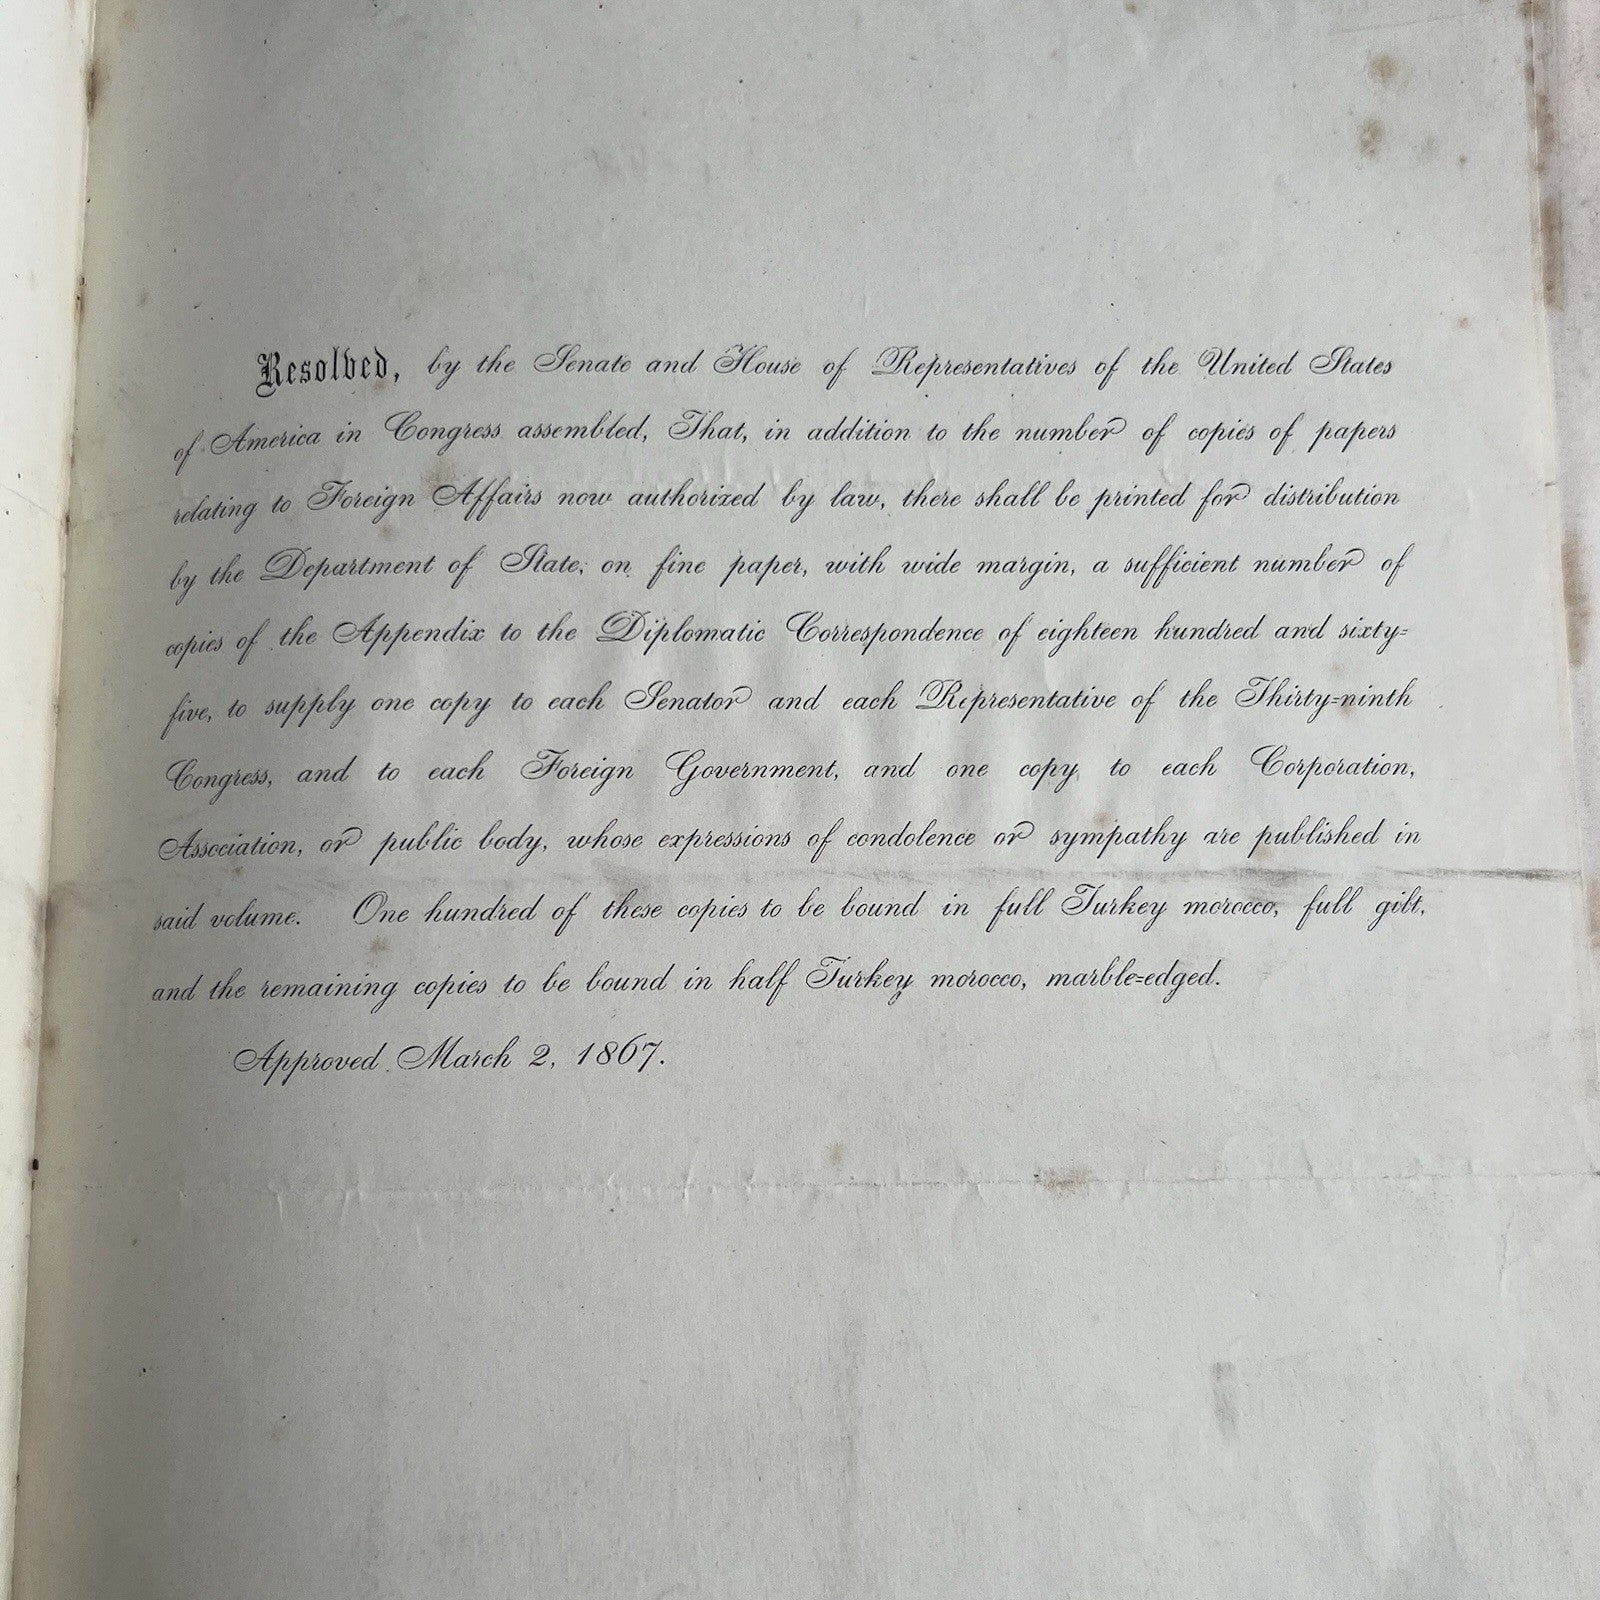 Resolved, by the Senate and House of Representatives of the United States
of America in Congress assembled, That, in addition to the number of copies of papers
relating to Foreign Affairs now authorized by law, there shall be printed for distribution
by the Department of State, on fine paper, with wide margin, a sufficient number of
copies of the Appendix to the Diplomatic Correspondence of eighteen hundred and sixty-
five, to supply one copy to each Senator and each Representative of the Thirty-ninth
Congress, and to each Foreign Government, and one copy to each Corporation,
Association, or public body, whose expressions of condolence or sympathy are published in
said volume. One hundred of these copies to be bound in full Turkey morocco, full gilt,
and the remaining copies to be bound in half Turkey morocco, marble-edged.
Approved March 2, 1867.